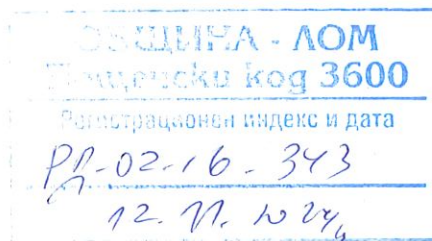 ОБЩИНА - ЛОМ
Пощенски код 3600
Регистрационен индекс и дата
РД-02-16-343
12.11.2024